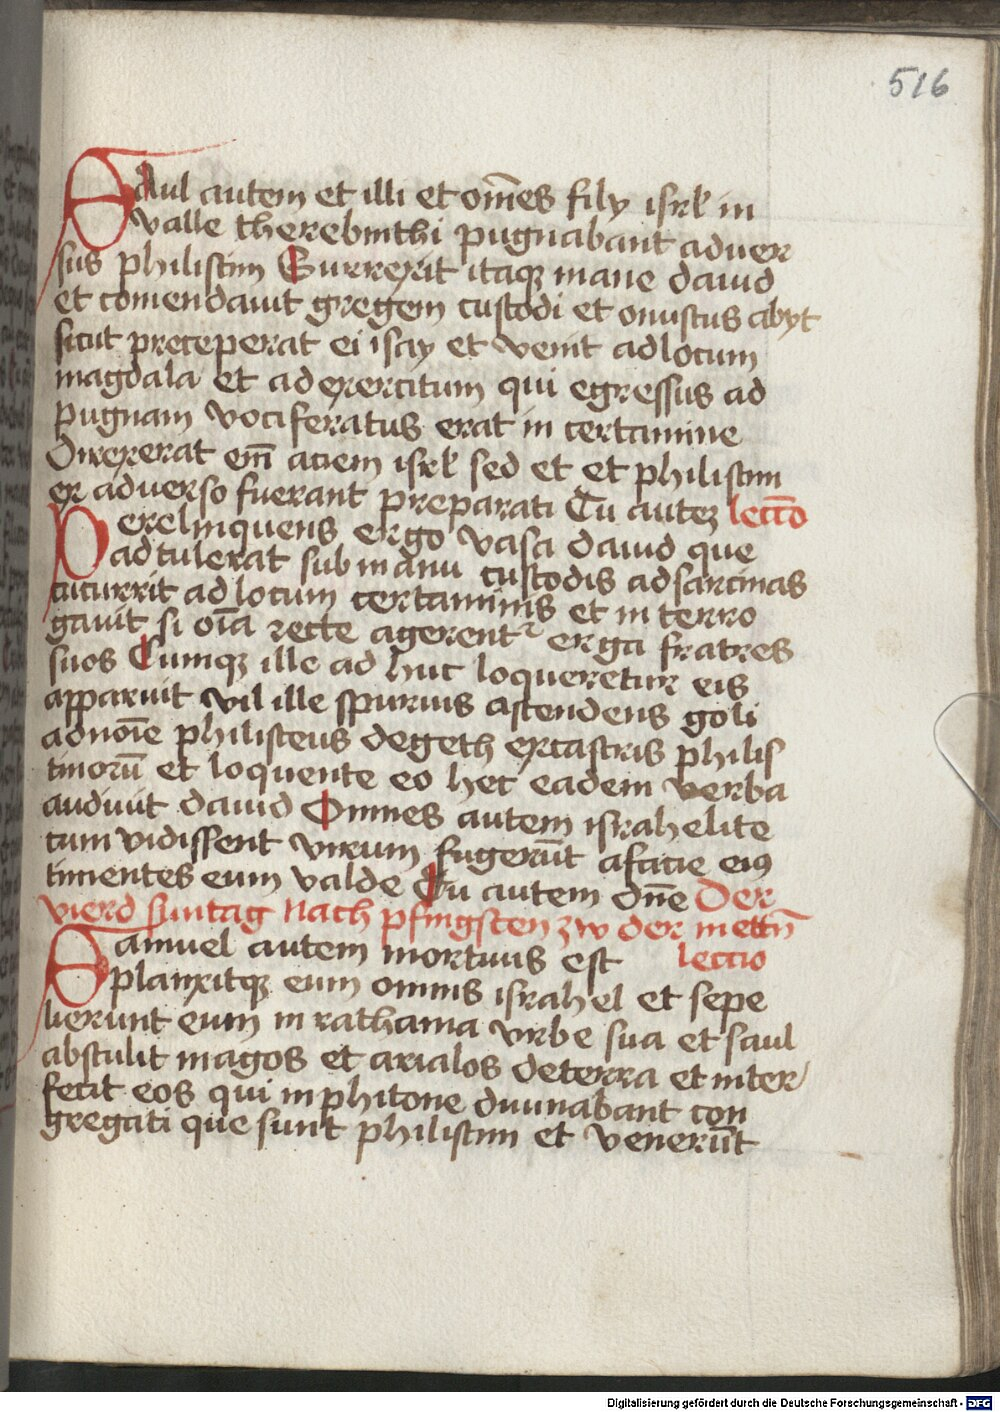 516
SAul autem et illi et om̄es filÿ isrl in
valle therebinthi pugnabant aduer
sus philistim Surrexit itaqz mane dauid
et comendauit gregem custodi et onustus abyt
sicut preceperat ei isay et venit ad locum
magdala et ad exercitum qui egressus ad
pugnam vociferatus erat in certamine
Direxerat em̄ aciem isrl sed et et philistim
ex aduerso fuerant preparati Tu autez lecc̄o
Derelinquens ergo vasa dauid que
adtulerat sub manu custodis ad sarcinas
cucurrit ad locum certaminis et in terro
gauit si oīa recte agerent erga fratres
suos Cumqz ille ad huc loqueretur eis
apparuit vil ille spurius ascendens goli
ad noīe philisteus de geth ex castris philis
tinorū et loquente eo hec eadem verba
audiuit dauid Omnes autem israhelite
cum vidissent virum fugerūt a facie eiꝰ
timentes eum valde Tu autem dn̄e Der
vierd suntag nach pfingsten zw der mettn̄
Samuel autem mortuus est lectio
planxitqz eum omnis israhel et sepe
lierunt eum in rathama vrbe sua et saul
abstulit magos et ariolos de terra et inter
fecit eos qui in phitone diuinabant con
gregati que sunt philistim et venerūt
Digitalisierung gefördert durch die Deutsche Forschungsgemeinschaft - DFG